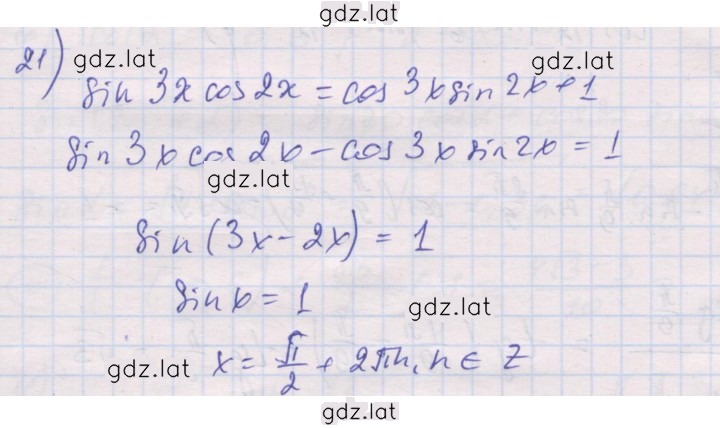 gdz.lat
21) gdz.lat gdz.lat
sin 3x cos 2x = cos 3x sin 2x + 1
sin 3x cos 2x - cos 3x sin 2x = 1
gdz.lat
sin (3x - 2x) = 1
sin x = 1
gdz.lat
x = π/2 + 2πn, n ∈ Z
gdz.lat
gdz.lat